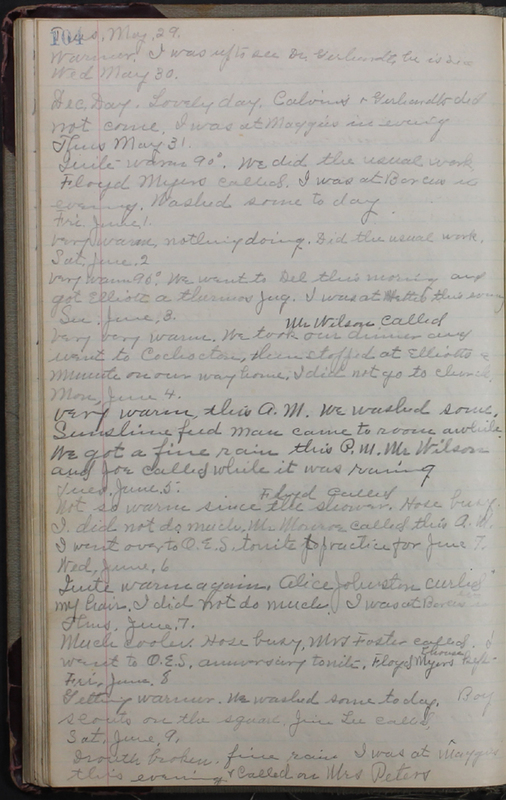 104
Tues, May 29.
Warmer. I was up to see Dr Gerhardt, he is
Wed May 30.
Dec, Day. Lovely day. Calvins & Gerhardts did
not come, I was at Maggies in evening
Thus May 31.
Quite warm 90°. We did the usual work
Floyd Myers called. I was at Borcis in
evening. Washed some to day
Fri. June, 1
Very warm, nothing doing. Did the usual work.
Sat, June, 2
very warm 96°. We went to Del this morning and
got Elliott a thermos jug. I was at this evening
Sun. June, 3.
Mr Wilson called
Very very warm. We took our dinner and
went to Cochocton, then stopped at Elliotts a
minute on our way home. I did not go to church.
Mon, June 4.
Very warm this A.M. We washed some.
Sunshine feed man came to room awhile.
We got a fine rain this P.M. Mr Wilson
and Joe called while it was raining
Tues, June, 5.
Floyd called
Not so warm since the shower. Hose busy.
I did not do much. Mr Monroe called this A.M.
I went over to O.E.S. tonite to practice for June 7.
Wed, June, 6
Quite warm again. Alice Johnston curled
my hair. I did not do much. I was at in
Thus, June, 7.
Much cooler. Hose busy, Mrs Foster called. I
went to O.E.S. anniversary tonite. Floyd Myers
Fri, June, 8
Getting warmer. We washed some today. Boy
scouts on the square, Jim Lee called,
Sat, June 9,
Drouth broken. fine rain I was at Maggies
this evening & called on Mrs Peters